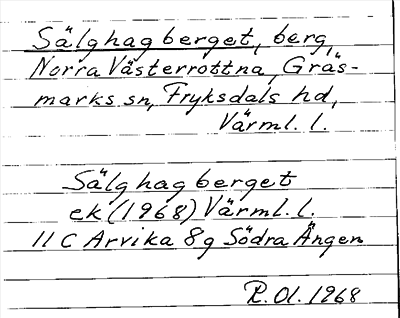 Sälghagberget, berg,
Norra Västerrottna, Gräs-
marks sn, Fryksdals hd,
Värml. l.
Sälghagberget
ek (1968) Värml. l.
11 C Arvika 8g Södra Ängen
R. Ol. 1968